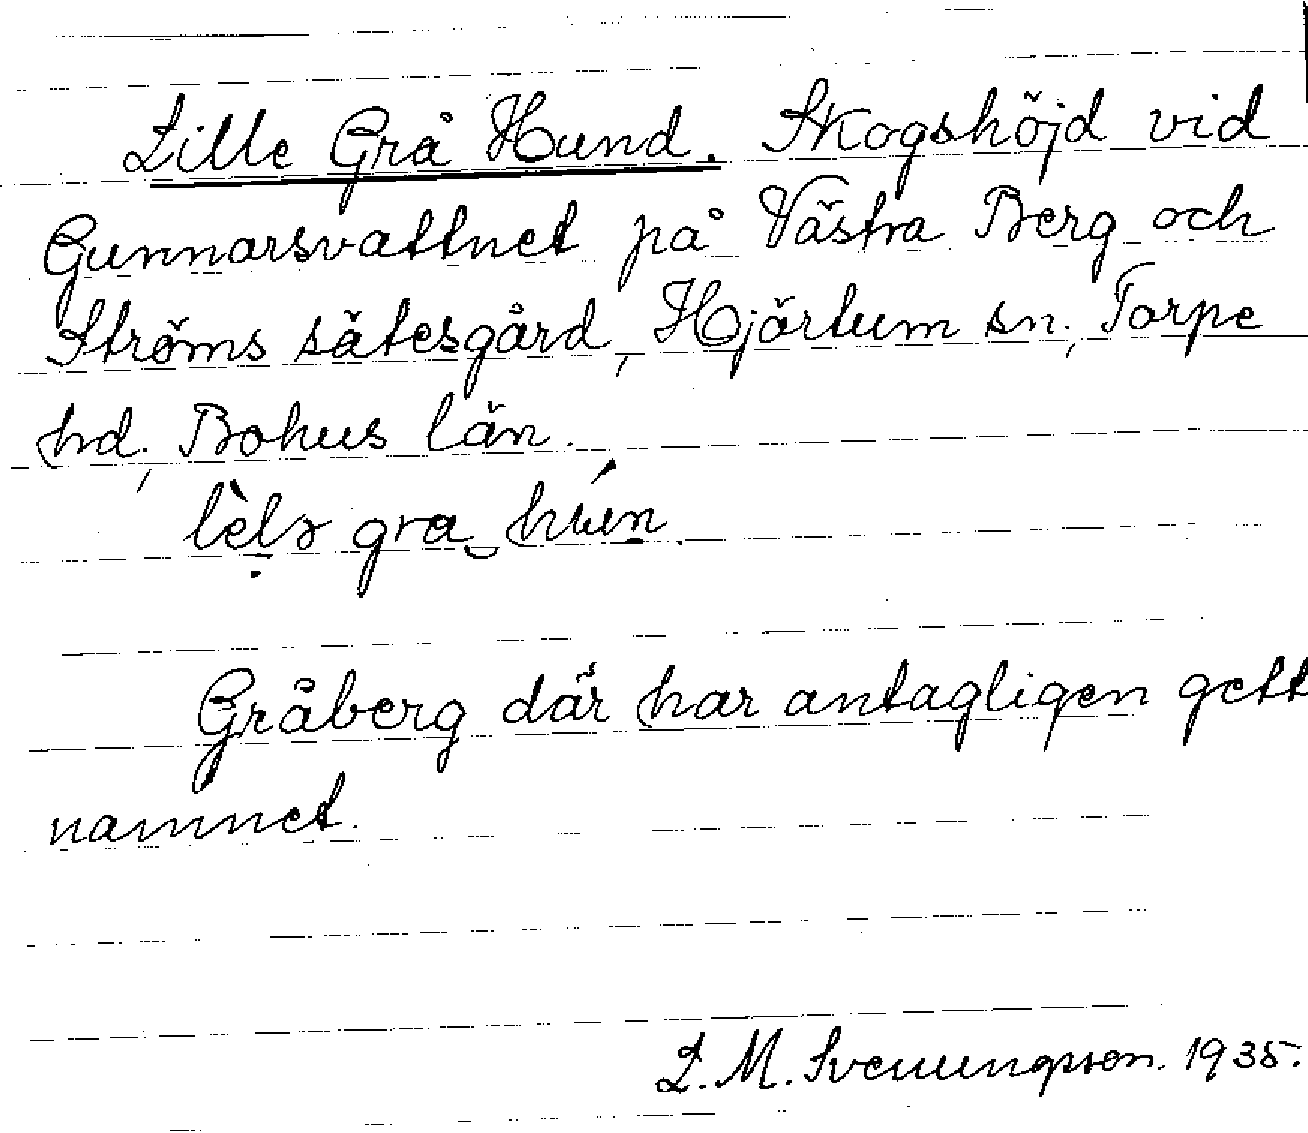 Lille Grå Hund. Skogshöjd vid
Gunnarsvattnet på Västra Berg och
Ströms sätesgård, Hjärtum sn., Torpe
hd., Bohus län.
lèlə gra hún.
Gråberg där har antagligen gett
namnet.
L. M. Svenungsson. 1935.